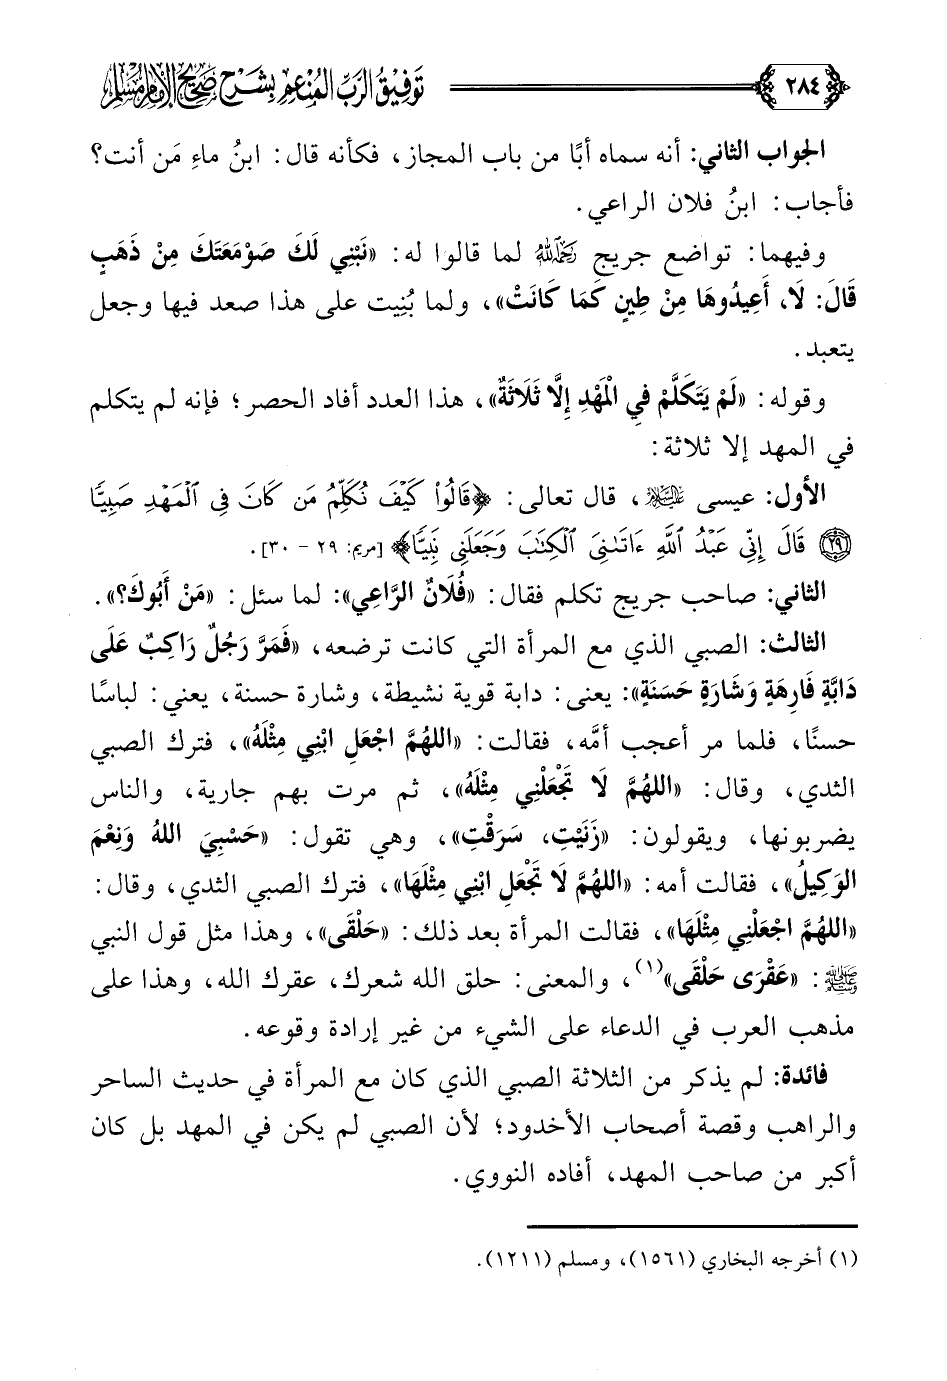 ٢٨٤ توفيق الرب المنعم بشرح صحيح الإمام مسلم
الجواب الثاني: أنه سماه أبًا من باب المجاز، فكأنه قال: ابنُ ماءِ مَن أنت؟
فأجاب: ابنُ فلان الراعي.
وفيهما: تواضع جريج رَحِمَهُ اللَّهُ لما قالوا له: «نَبْنِي لَكَ صَوْمَعَتَكَ مِنْ ذَهَبٍ
قَالَ: لَا، أَعِيدُوهَا مِنْ طِينٍ كَمَا كَانَتْ»، ولما بُنِيت على هذا صعد فيها وجعل
يتعبد.
وقوله: «لَمْ يَتَكَلَّمْ فِي الْمَهْدِ إِلَّا ثَلَاثَةٌ»، هذا العدد أفاد الحصر؛ فإنه لم يتكلم
في المهد إلا ثلاثة:
الأول: عيسى عَلَيْهِ السَّلَامُ، قال تعالى: ﴿قَالُوا۟ كَيْفَ نُكَلِّمُ مَن كَانَ فِى ٱلْمَهْدِ صَبِيًّا
۝٢٩ قَالَ إِنِّى عَبْدُ ٱللَّهِ ءَاتَىٰنِىَ ٱلْكِتَٰبَ وَجَعَلَنِى نَبِيًّا﴾ [مريم: ٢٩ - ٣٠].
الثاني: صاحب جريج تكلم فقال: «فُلَانٌ الرَّاعِي»: لما سئل: «مَنْ أَبُوكَ؟».
الثالث: الصبي الذي مع المرأة التي كانت ترضعه، «فَمَرَّ رَجُلٌ رَاكِبٌ عَلَى
دَابَّةٍ فَارِهَةٍ وَشَارَةٍ حَسَنَةٍ»: يعني: دابة قوية نشيطة، وشارة حسنة، يعني: لباسًا
حسنًا، فلما مر أعجب أمَّه، فقالت: «اللهُمَّ اجْعَلِ ابْنِي مِثْلَهُ»، فترك الصبي
الثدي، وقال: «اللهُمَّ لَا تَجْعَلْنِي مِثْلَهُ»، ثم مرت بهم جارية، والناس
يضربونها، ويقولون: «زَنَيْتِ، سَرَقْتِ»، وهي تقول: «حَسْبِيَ اللهُ وَنِعْمَ
الوَكِيلُ»، فقالت أمه: «اللهُمَّ لَا تَجْعَلِ ابْنِي مِثْلَهَا»، فترك الصبي الثدي، وقال:
«اللهُمَّ اجْعَلْنِي مِثْلَهَا»، فقالت المرأة بعد ذلك: «حَلْقَى»، وهذا مثل قول النبي
ﷺ: «عَقْرَى حَلْقَى»(١)، والمعنى: حلق الله شعرك، عقرك الله، وهذا على
مذهب العرب في الدعاء على الشيء من غير إرادة وقوعه.
فائدة: لم يذكر من الثلاثة الصبي الذي كان مع المرأة في حديث الساحر
والراهب وقصة أصحاب الأخدود؛ لأن الصبي لم يكن في المهد بل كان
أكبر من صاحب المهد، أفاده النووي.
(١) أخرجه البخاري (١٥٦١)، ومسلم (١٢١١).